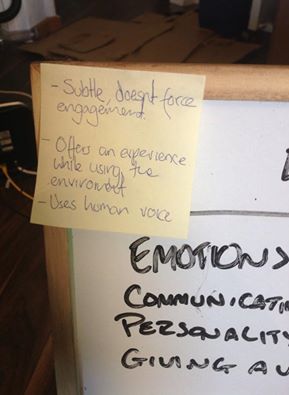 - Subtle, doesn't force
engagement.
- Offers an experience
while using the
enviroment
- Uses human voice
EMOTIONS
COMMUNICATI
PERSONALITY
GIVING A